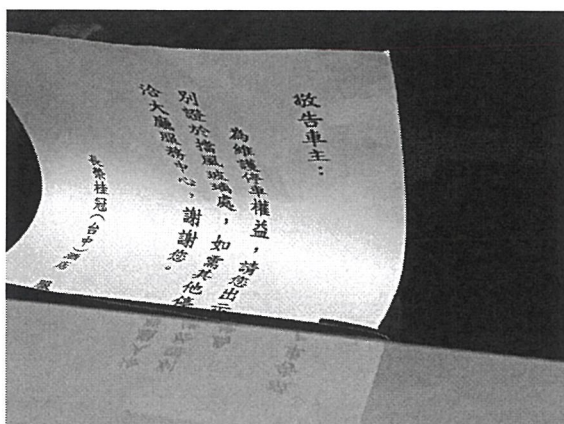 敬告車主：
為維護停車權益，請您出示
別證於擋風玻璃處，如需其他停
洽大廳服務中心，謝謝您。
長榮桂冠（台中）酒店